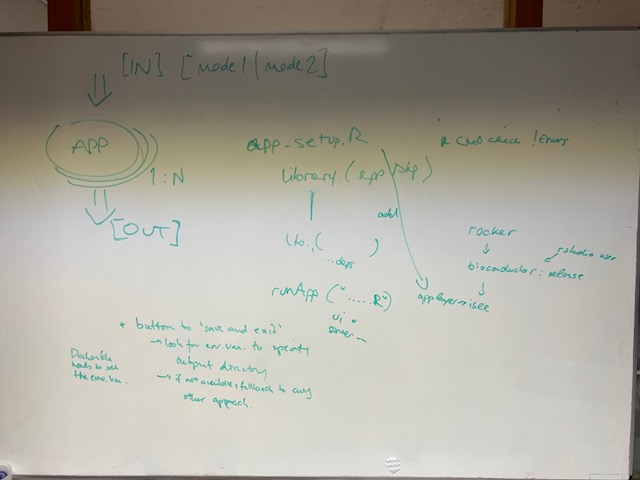 [IN] [mode1 | mode2]
APP
1:N
[OUT]
app_setup.R
library(app/pkg)
add
.... deps
runApp (".....R")
ui
server
R CMD check !Errors
rocker
↓
rstudio user
bioconductor: release
↓
app layer → isee
+ button to 'save and exit'
→ look for env.var. to specify
output directory
→ if not available, fallback to any
other approach.
Dockerfile
needs to set
the env.var.